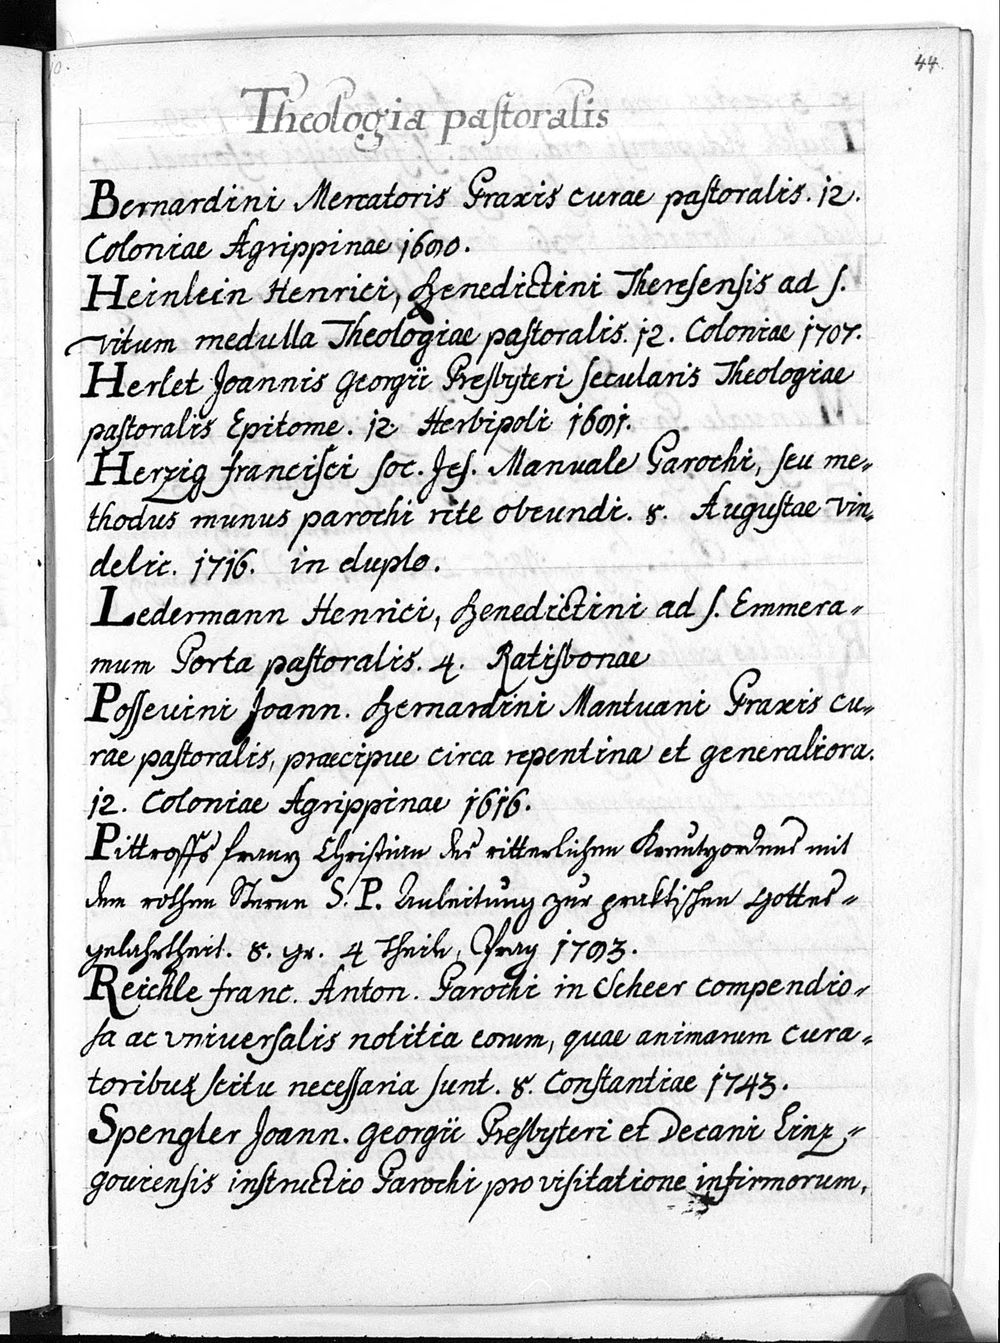 44.
Theologia paſtoralis
Bernardini Mercatoris Praxis curae paſtoralis. 12.
Coloniae Agrippinae 1690.
Heinlein Henrici, Benedictini Thereſenſis ad S.
Vitum medulla Theologiae paſtoralis. 12. Coloniae 1707.
Herlet Joannis Georgii Preſbyteri ſecularis Theologiae
paſtoralis Epitome. 12 Herbipoli 1691.
Herzig franciſci ſoc. Jeſ. Manuale Parochi, ſeu me„
thodus munus parochi rite obeundi. 8. Auguſtae Vin„
delic. 1716. in duplo.
Ledermann Henrici, Benedictini ad S. Emmera„
mum Porta paſtoralis. 4. Ratiſbonae
Poſſevini Joann. Bernardini Mantuani Praxis cu„
rae paſtoralis, praecipue circa repentina et generaliora.
12. Coloniae Agrippinae 1616.
Pittroffs franz Chriſtian des ritterlichen Kreutzordens mit
dem rothen Sterne S. P. Anleitung zur praktiſchen Gottes„
gelahrtheit. 8. gr. 4 Theile, Prag 1793.
Reichle franc. Anton. Parochi in Scheer compendio„
ſa ac vniverſalis notitia eorum, quae animarum cura„
toribus ſcitu neceſſaria ſunt. 8. Conſtantiae 1743.
Spengler Joann. Georgii Preſbyteri et Decani Linz„
govienſis inſtructio Parochi pro viſitatione infirmorum,